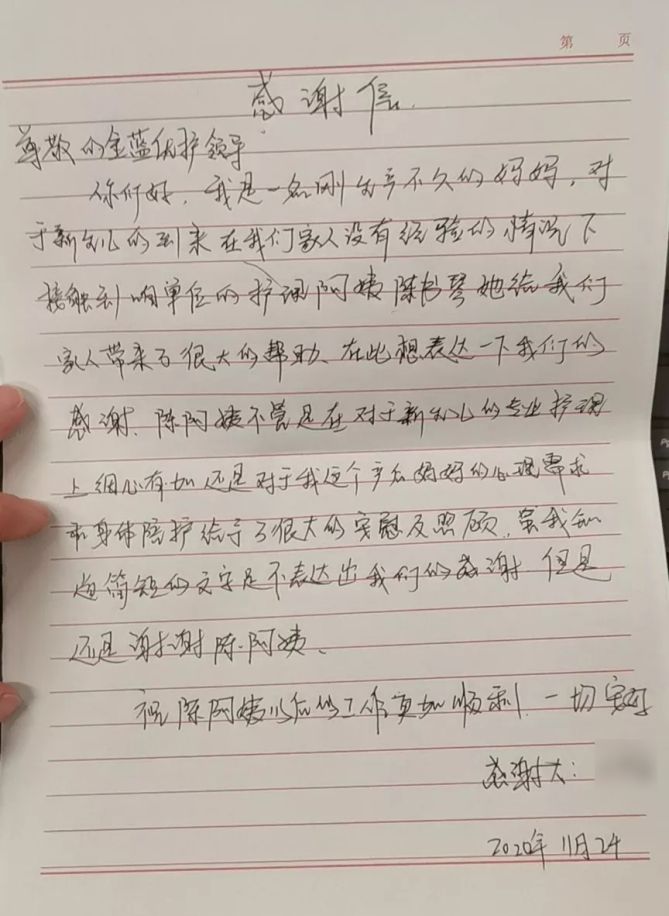 第 页
感谢信.
尊敬的金蓝优护领导
你们好，我是一名刚生产不久的妈妈，对
于新生儿的到来在我们家人没有经验的情况下
接触到咱单位的护理阿姨陈书琴她给我们
家人带来了很大的帮助，在此想表达一下我们的
感谢，陈阿姨不管是在对于新生儿的专业护理
上细心有加还是对于我这个产后妈妈的心理需求
和身体陪护给予了很大的安慰及照顾，虽我知
道简短的文字是不表达出我们的感谢 但是
还是谢谢陈阿姨、
祝陈阿姨以后的工作更加顺利，一切安好
感谢人：
2020年11月24